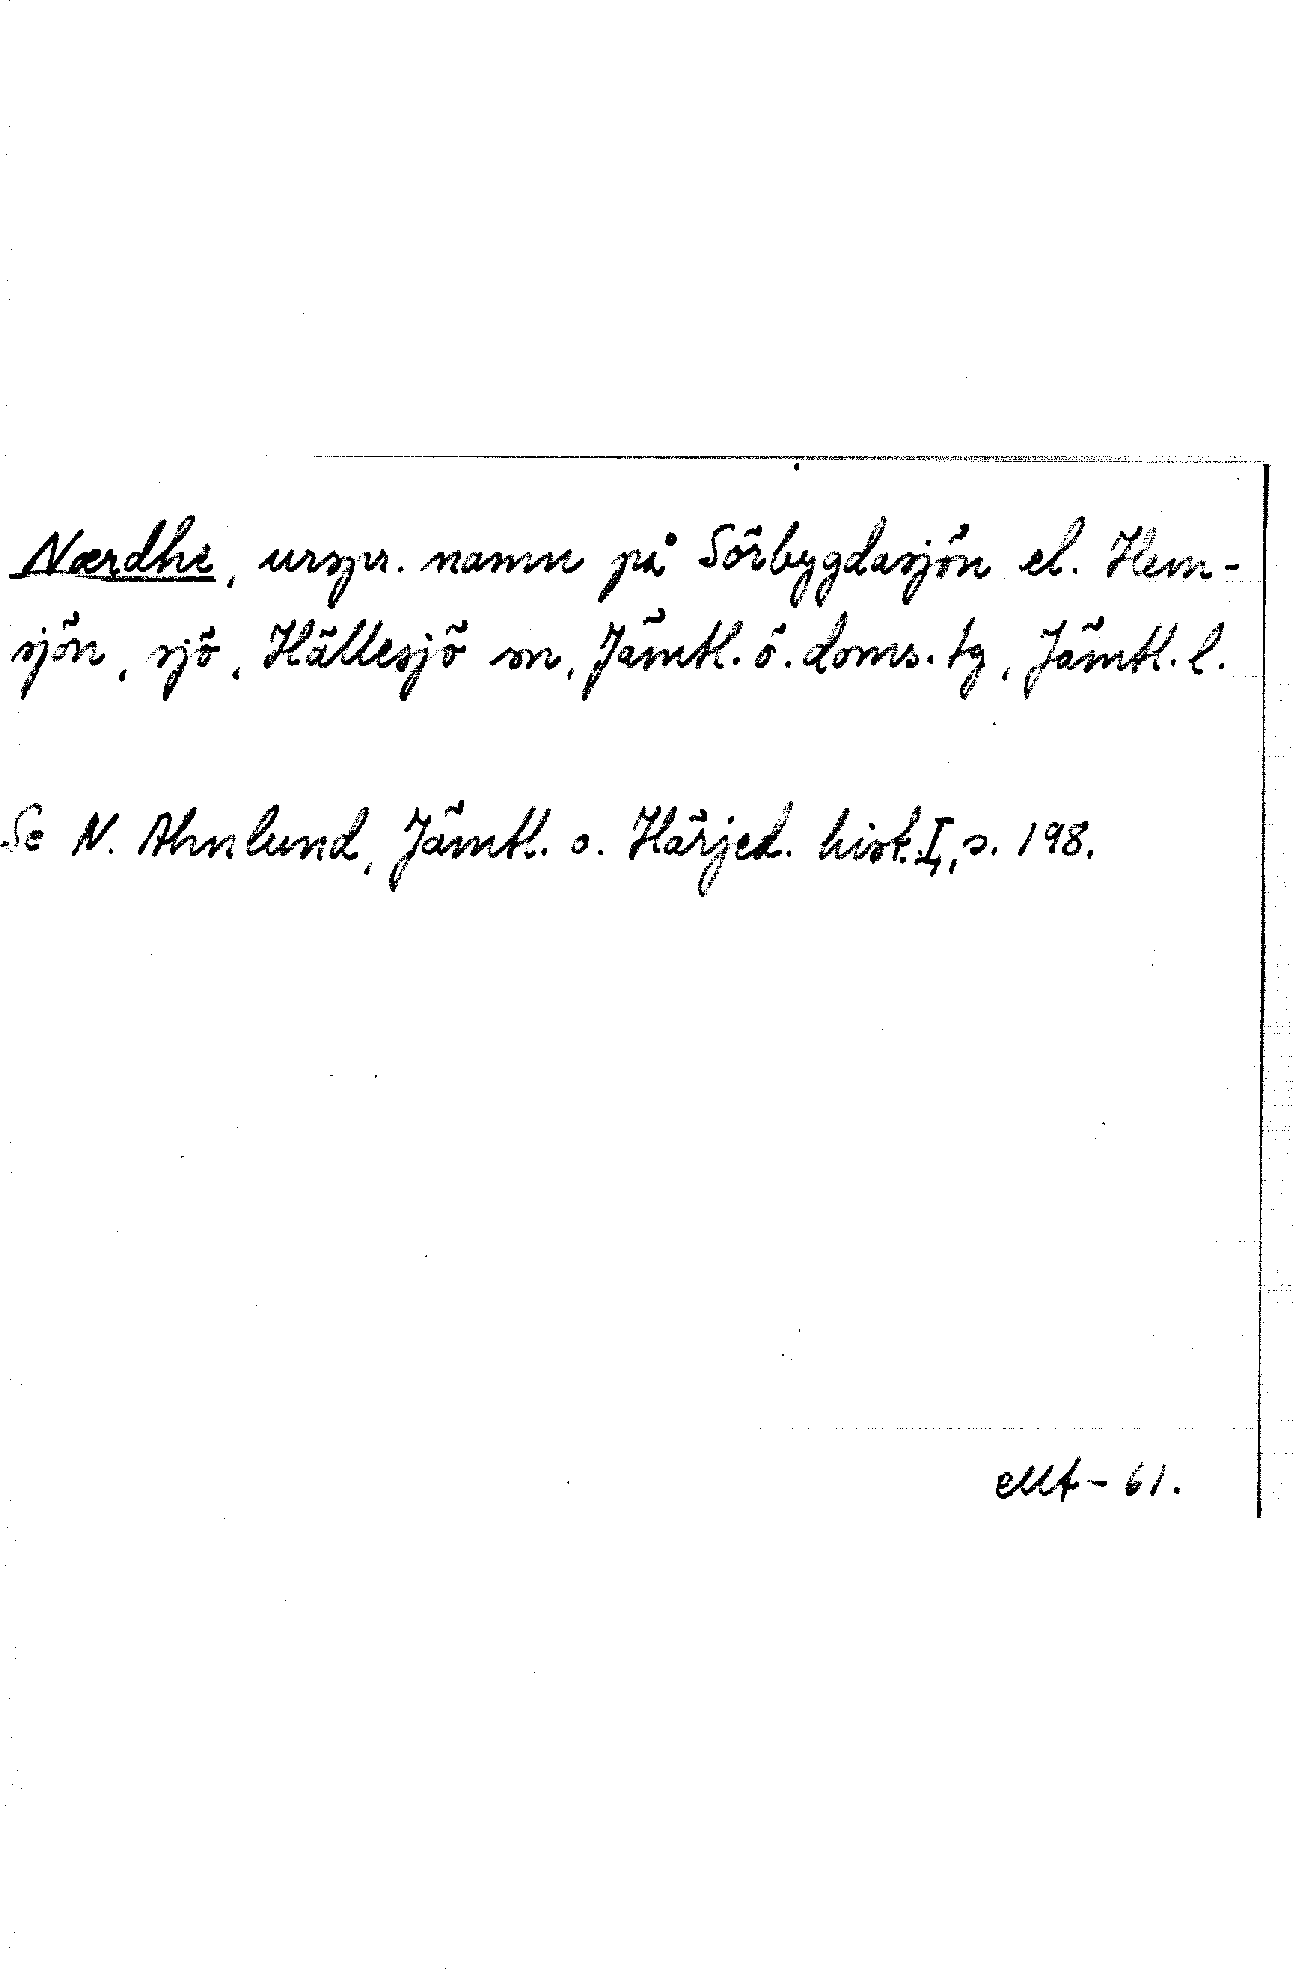 Nærdhe, urspr. namn på Sörbygdasjön el. Hem-
sjön, sjö, Hällesjö sn, Jämtl. ö. doms. tg, Jämtl. l.
Se N. Ahnlund, Jämtl. o. Härjed. hist. I, s. 198.
- 61.